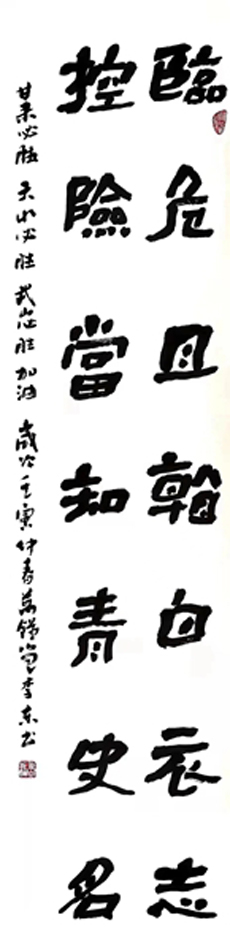 臨危且翰白衣志
控險當知青史名
甘肃必胜 天水必胜 武山必胜 加油 歲次壬寅仲春萬锦堂李东书